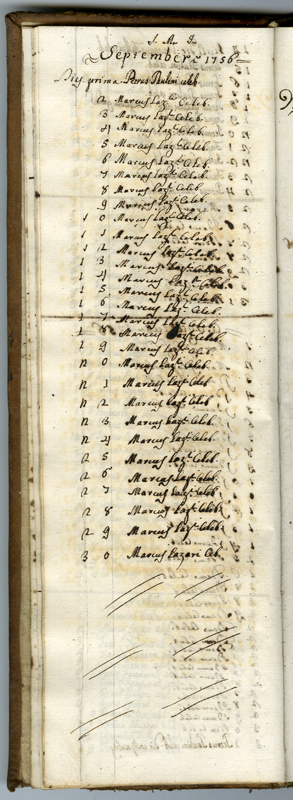 September 1756
Dies prima Petrus
2 Marcus Laz. Celeb.
3 Marcus Laz. Celeb.
4 Marcus Laz. Celeb.
5 Marcus Laz. Celeb.
6 Marcus Laz. Celeb.
7 Marcus Laz. Celeb.
8 Marcus Laz. Celeb.
9 Marcus Laz. Celeb.
1 0 Marcus Laz. Celeb.
1 1 Marcus Laz. Celeb.
1 2 Marcus Laz. Celeb.
1 3 Marcus Laz. Celeb.
1 4 Marcus Laz. Celeb.
1 5 Marcus Laz. Celeb.
1 6 Marcus Laz. Celeb.
1 7 Marcus Laz. Celeb.
1 8 Marcus Laz. Celeb.
1 9 Marcus Laz. Celeb.
2 0 Marcus Laz. Celeb.
2 1 Marcus Laz. Celeb
2 2 Marcus Laz. Celeb.
2 3 Marcus Laz. Celeb.
2 4 Marcus Laz. Celeb.
2 5 Marcus Laz. Celeb.
2 6 Marcus Laz. Celeb.
2 7 Marcus Laz. Celeb.
2 8 Marcus Laz. Celeb.
2 9 Marcus Laz. Celeb.
3 0 Marcus Lazari Ceb.